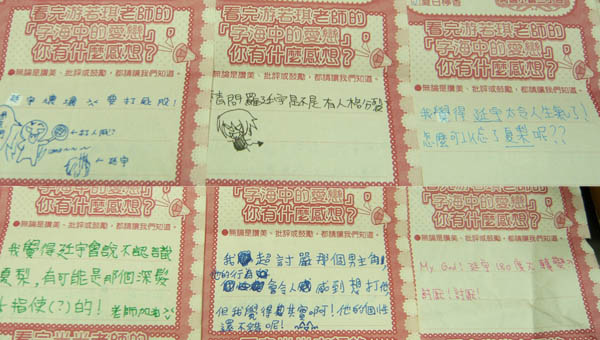 看完游若琪老師的
「字海中的愛戀」
你有什麼感想？
●無論是讚美、批評或鼓勵，都請讓我們知道。
延宇壞壞 欠要打屁股！
←打人啟？
←延宇
看完游若琪老師的
「字海中的愛戀」
你有什麼感想？
●無論是讚美、批評或鼓勵，都請讓我們知道。
請問羅延宇是不是有人格分裂
看完游若琪老師的
「字海中的愛戀」
你有什麼感想？
●無論是讚美、批評或鼓勵，都請讓我們知道。
我覺得延宇太令人生氣了！
怎麼可以忘了夏梨呢??
「字海中的愛戀」
你有什麼感想？
●無論是讚美、批評或鼓勵，都請讓我們知道。
我覺得延宇會說不認識
夏梨，有可能是那個深髮
指使(?)的！ 老師加油
看完游若琪老師的
「字海中的愛戀」
你有什麼感想？
●無論是讚美、批評或鼓勵，都請讓我們知道。
我超討厭那個男主角
他的行為
會令人感到想打他
但我覺得真寫啊！他的個性
還不錯呢！
「字海中的愛戀」
你有什麼感想？
●無論是讚美、批評或鼓勵，都請讓我們知道。
My God! 延宇180度大轉變
討厭！討厭！